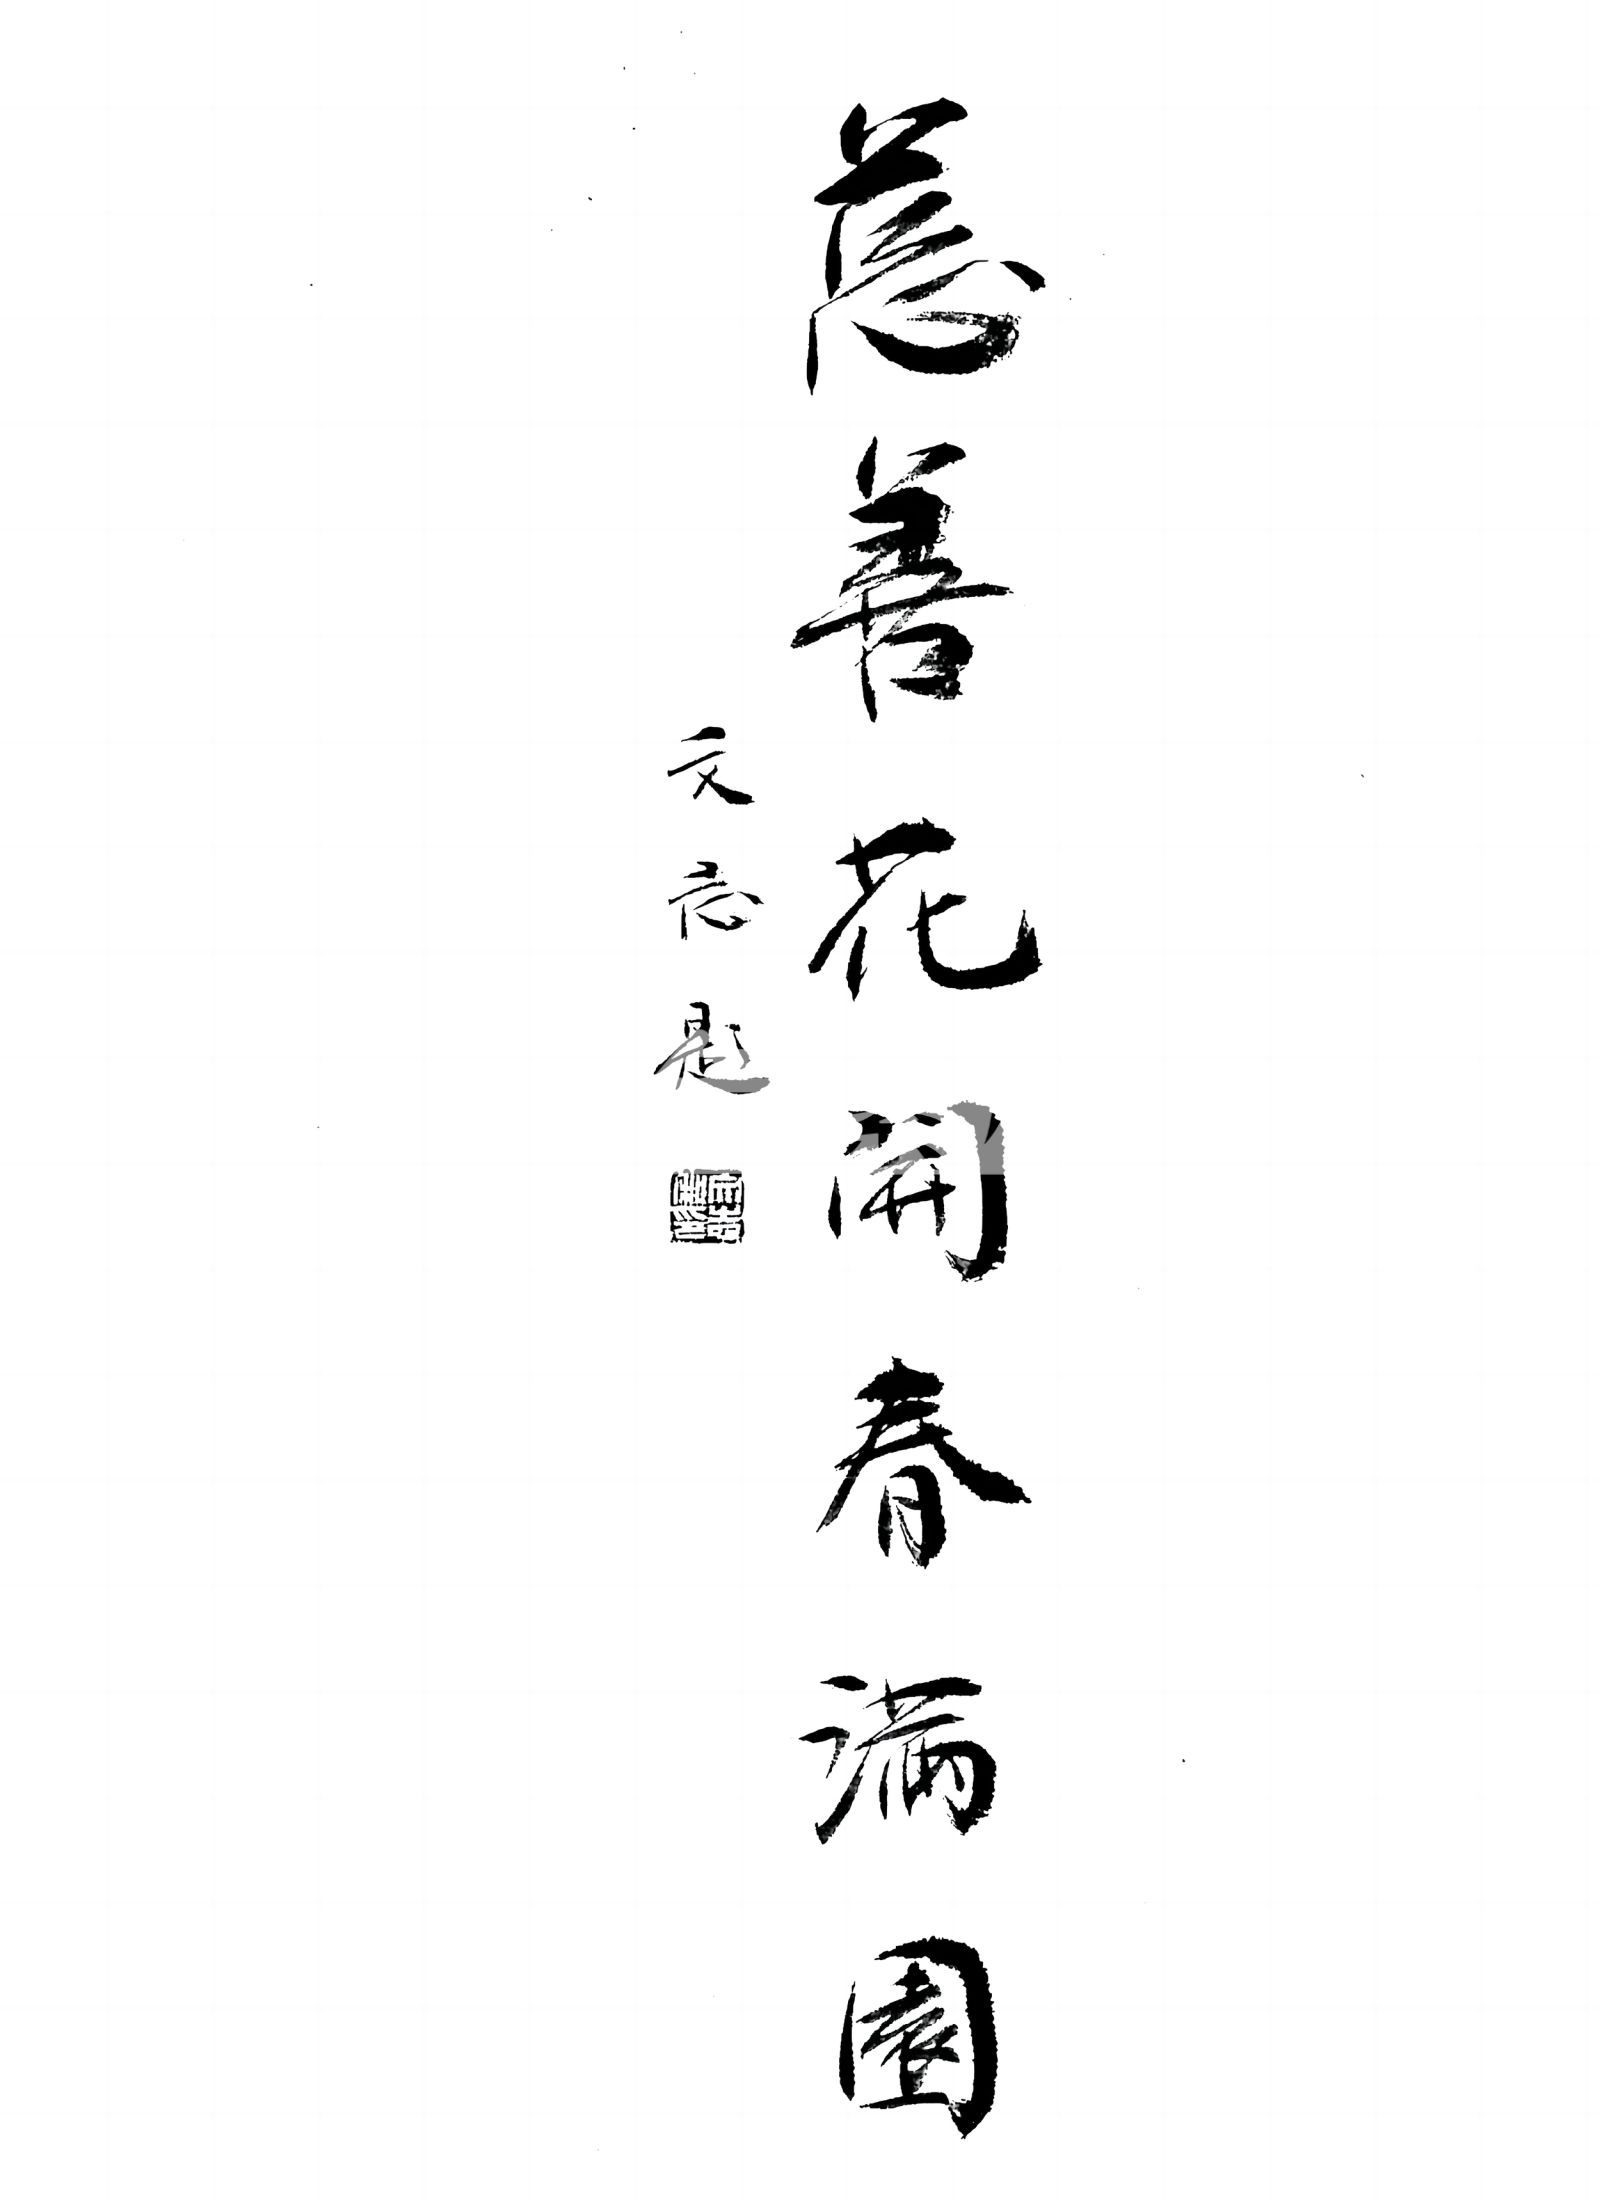 慈善花開春滿園
文 題